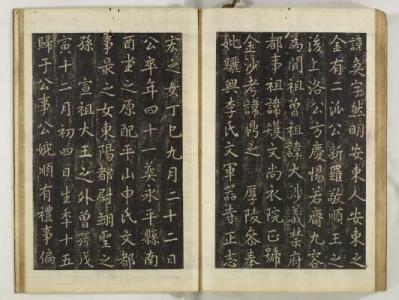 諱奐字然明安東人安東之
金有二派公新羅敬順王之
後上洛公方慶惕若齋九容
為聞祖曾祖諱大涉義禁府
都事祖諱㺩文尚衣院正號
金沙考諱鼎之 厚陵參奉
妣驪興李氏文軍器寺正志
宏之女丁巳九月二十二日
公卒年四十一葬永平縣南
酉堂之原配平山申氏文都
事㝡之女東陽都尉翊聖之
孫 宣祖大王之外曾孫戊
寅十二月初四日生年十五
歸于公事公姥順有禮事偏